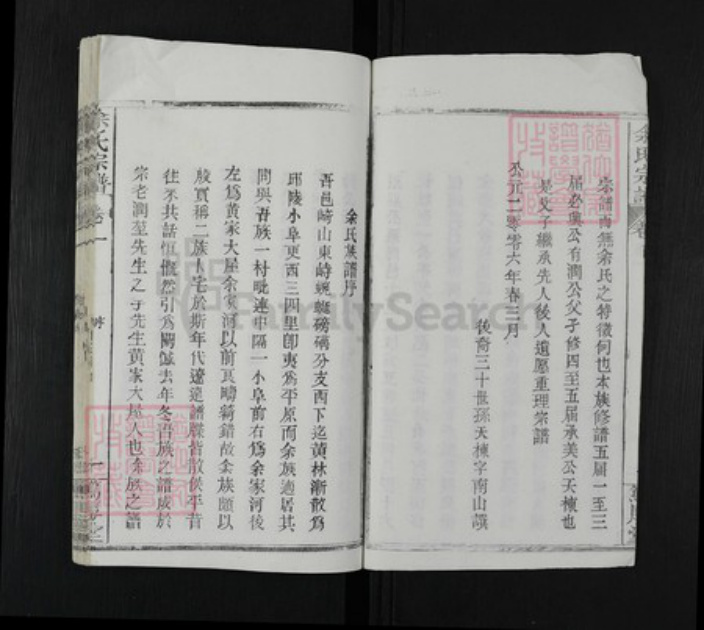 宗譜而無余氏之特徵何也本族修譜五屆一至三
屆必與公有潤公父子修四至五屆承美公天棟也
是父子繼承先人後人遺愿重理宗譜
公元二零零六年春三月
後裔三十世孫天棟字南山譔
余氏族譜序
吾邑崎山東峙蜿蜒磅礴分支西下迄黄林漸散為
邱陵小阜更西三四里即夷為平原而余族適居其
間與吾族一村毗連中隔一小阜前右為余家河後
左為黄家大屋余家河以前瓦疇綺錯故余族頗以
殷實稱二族卜宅於斯年代遼遠譜牒皆散佚平昔
往來共話恒慨然引為闕憾去年冬吾族之譜成於
宗老潤荃先生之手先生黄家大屋人也余族之譜
余氏宗譜 卷一
序
余氏宗譜 卷
FamilySearch